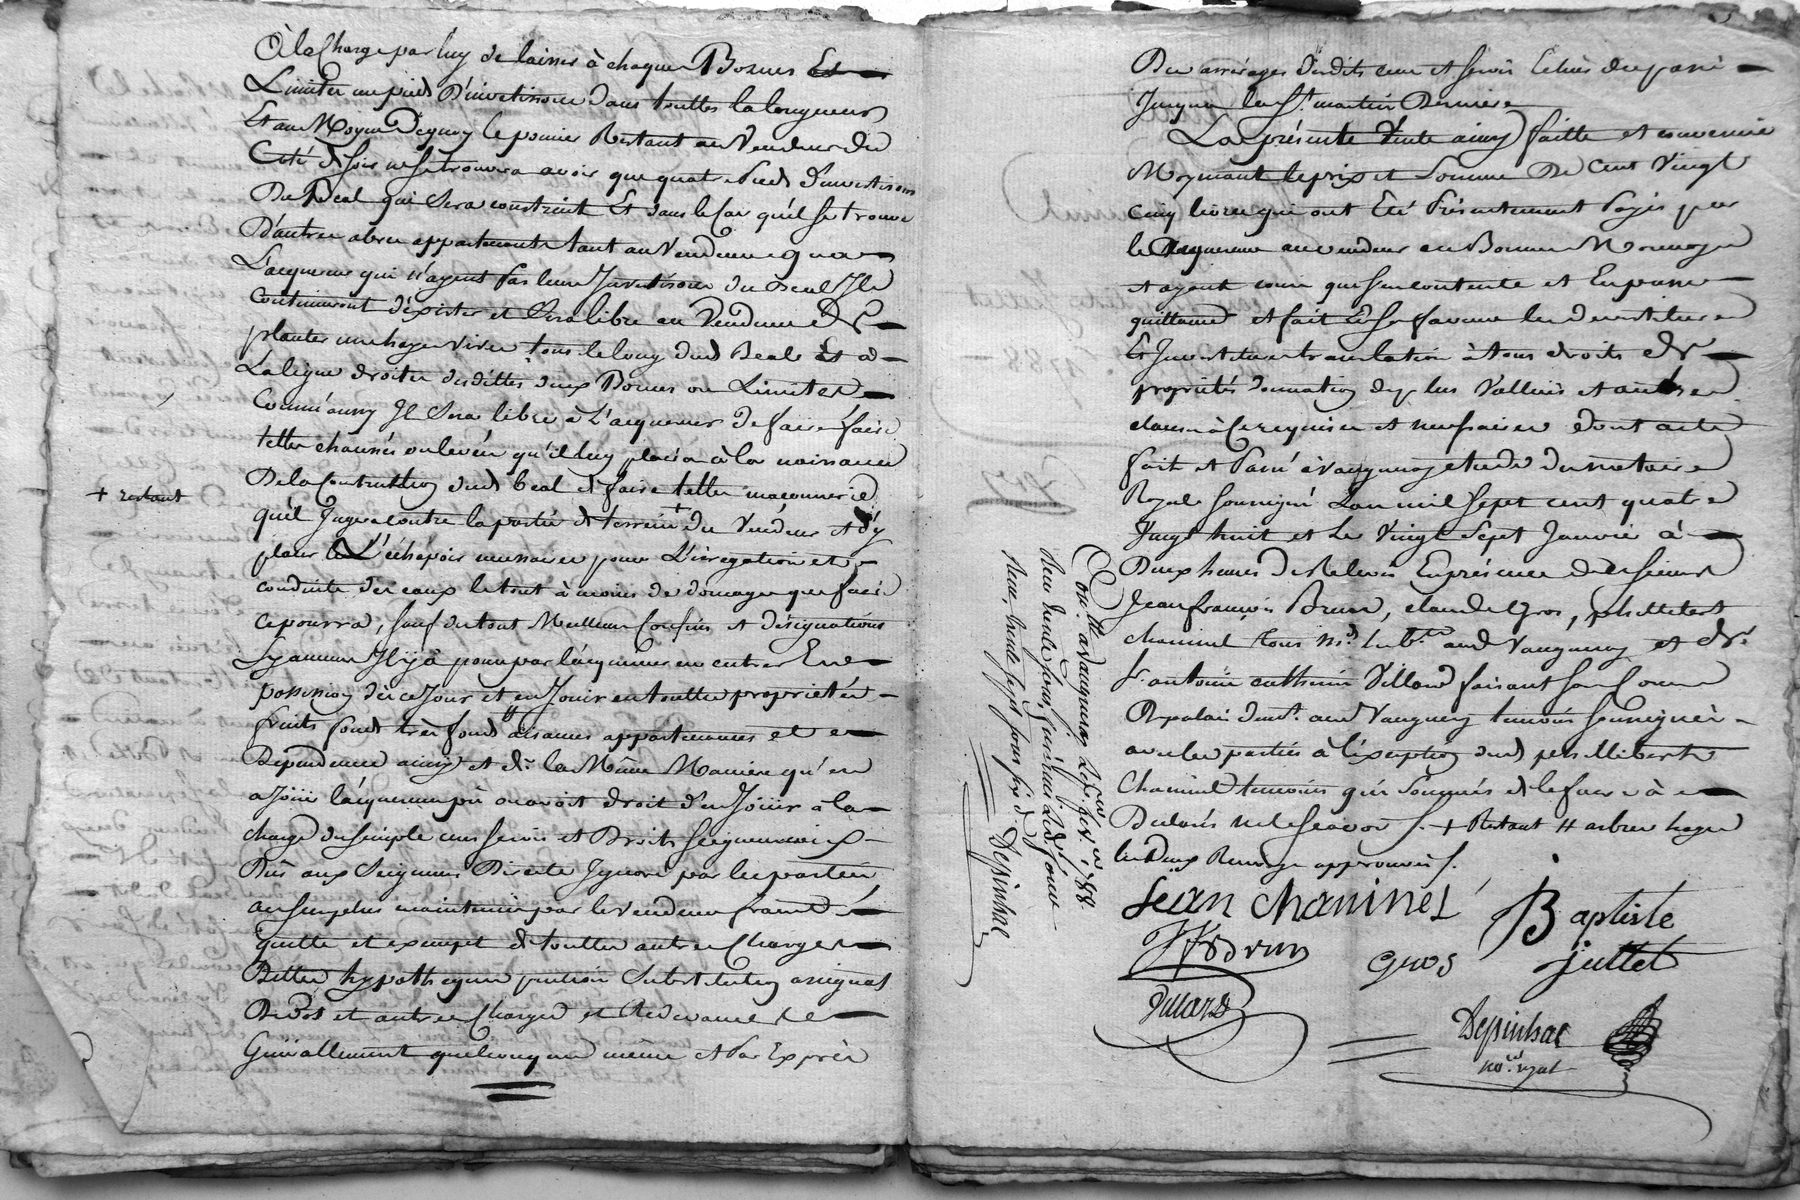 à la Charge par luy de laisser à chaque Bornes Et
Limiter un pied D'invetisson dans touttes la longueur
Et au Moyen Dequoy le premier Restant au Vendeur du
Coté de soir ne se trouvera avoir que quatre Pieds D'invetison
Du Beal qui Sera construit Et dans le Cas qu'il se trouve
D'autres abres appartenants tant au Vendeur qu'a
L'acquereur qui n'ayent pas leur Invetison du Beal Ils
Continueront d'éxister et Sera libre au Vendeur de
planter une haye vive tous le long dud Beal Et a
La ligne droitte desdittes deux Bornes ou Limites
Comm'aussy Il Sera libre à L'acquereur de faire faire
telles chaussés ou levée qu'il luy plaira à la naissance
De la Construction dud beal & faire telles maçonnerie
+ restant
qu'il Jugera contre la partie de terrein + du Vendeur et d'y
placer L'échapoir necessaire pour L'iregation et
conduite des eaux le tout à moins de domage que faire
ce pourra, sauf du tout Meilleurs Confins et désignations
Sy aucuns Il y à pour par l'acquereur en entrer En
possession dès ce Jour et en Jouir en touttes proprietés
fruits fonds très fonds # aisances appartenances et
Dependences ainsy et de la Même Maniere qu'en
a Joüi l'acquereur pü ou avoit droit d'en Joüir à la
charge du simple cens servis et Droits seigneuriaux
Dûs aux Seigneurs Directe Ignoré par les parties
au surplus maintenu par le Vendeur franc
quitte et exempt de touttes autres Charges
Dettes hypotheques pention Substitution assignat
De Dot et autres Charges et Redevances
Generallement quelconques même et Par Exprès
Des arrérages desdits cens et servis Echus du passé
Jusques la St martin Derniere
La présente Vente ainsy faitte et convenüe
Moyenant le prix et Somme De Cent Vingt
cinq livres qui ont Eté Présentement Payés par
le dit acquereur au vendeur en Bonnes Monnoye
et ayant cours que s'en contente et En passe
quittance et fait En sa faveur les devestitures
Et Investitures translation à tous droits de
propriétés donnation du plus Valleur et autres
clauses à Ce requises et necessaires dont acte
fait et Passé à Vaugneray etude du notaire
Royal soussigné L'an mil Sept cent quatre
Vingt huit et Le Vingt Sept Janvier à
Deux heures de Relevée En présence de sieurs
Jean françois Brun, claude Gros, philibert
chaninel tous md hab.ts aud Vaugneray et de
Sr antoine cathérin Villard faisant sa Comme
au palais demt. aud Vaugneray temoins soussignés
avec les parties à l'éxception dud philibert
Chaninel temoins qui Sommés de le faire à
Declarés ne le scavoir /. + Restant # arbres hayes
les Deux Renvoys approuvés /.
Con.llé a Vaugneray Le six fevr. 1788.
Reçu trente sept sous six d. Depinhac
Jean Chaninel Baptiste
JF Brun Gros juttet
Villard
Depinhac
no.re royal